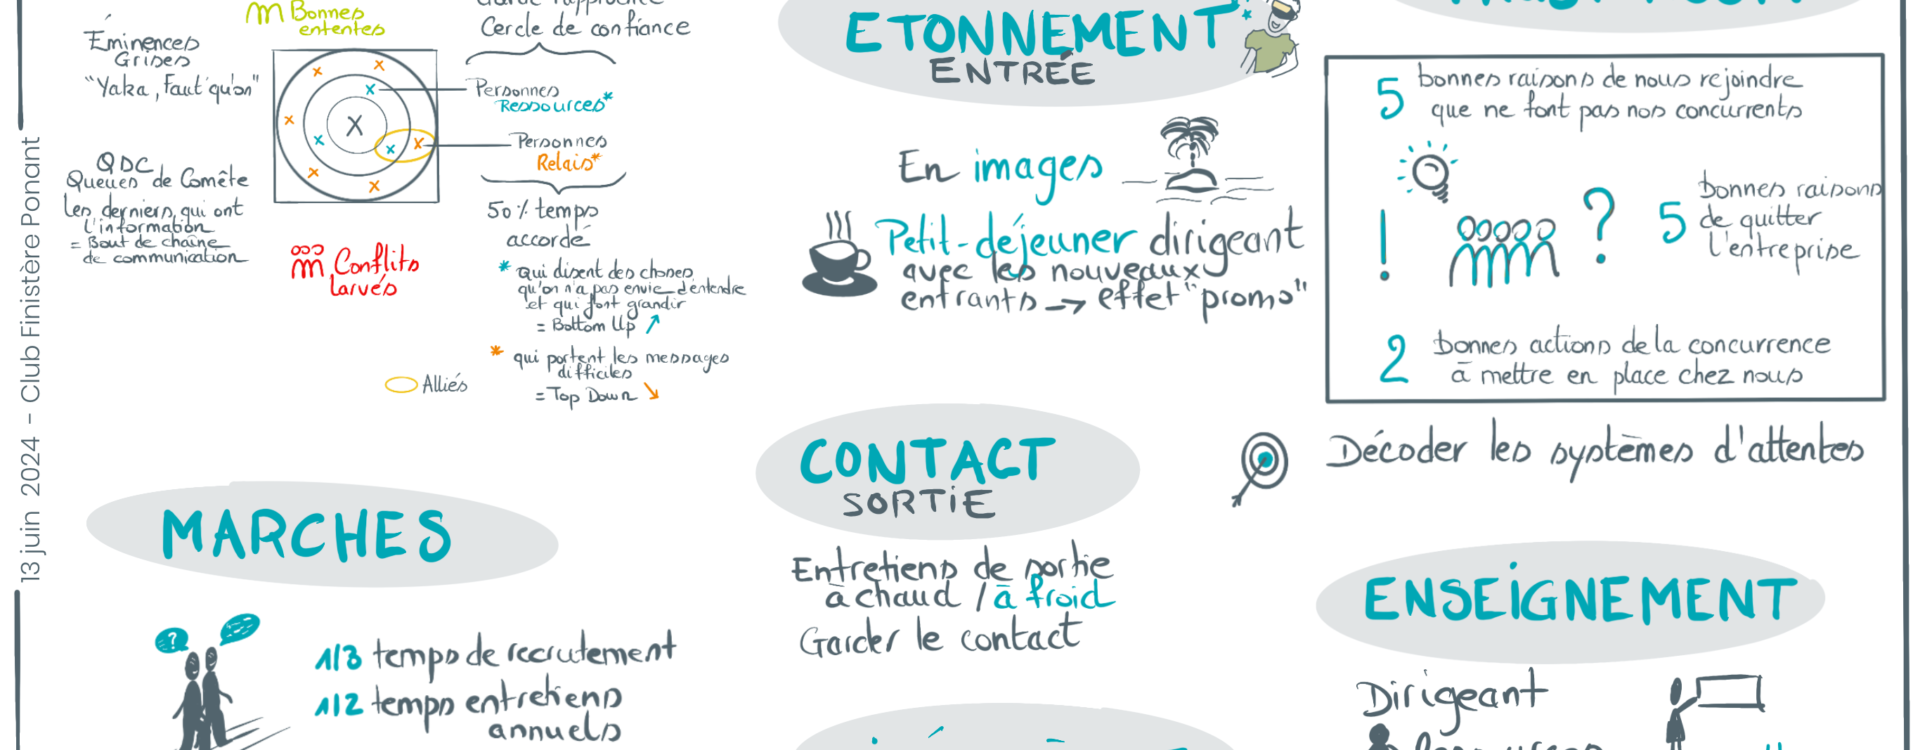 13 juin 2024 - Club Finistère Ponant
Éminences
Grises
"Yaka, Faut qu'on"
QDC
Queues de Comète
les derniers qui ont
l'information
= Bout de chaîne
de communication
Bonnes
ententes
Conflits
larvés
Alliés
Cercle de confiance
Personnes
Ressources*
Personnes
Relais*
50% temps
accordé
* qui disent des choses
qu'on n'a pas envie d'entendre
et qui font grandir
= Bottom Up
* qui portent les messages
difficiles
= Top Down
MARCHES
1/3 temps de recrutement
1/2 temps entretiens
annuels
ETONNEMENT
ENTRÉE
En images
Petit-déjeuner dirigeant
avec les nouveaux
entrants → effet "promo"
CONTACT
SORTIE
Entretiens de sortie
à chaud / à froid
Garder le contact
5 bonnes raisons de nous rejoindre
que ne font pas nos concurrents
! ?
5 bonnes raisons
de quitter
l'entreprise
2 bonnes actions de la concurrence
à mettre en place chez nous
Décoder les systèmes d'attentes
ENSEIGNEMENT
Dirigeant